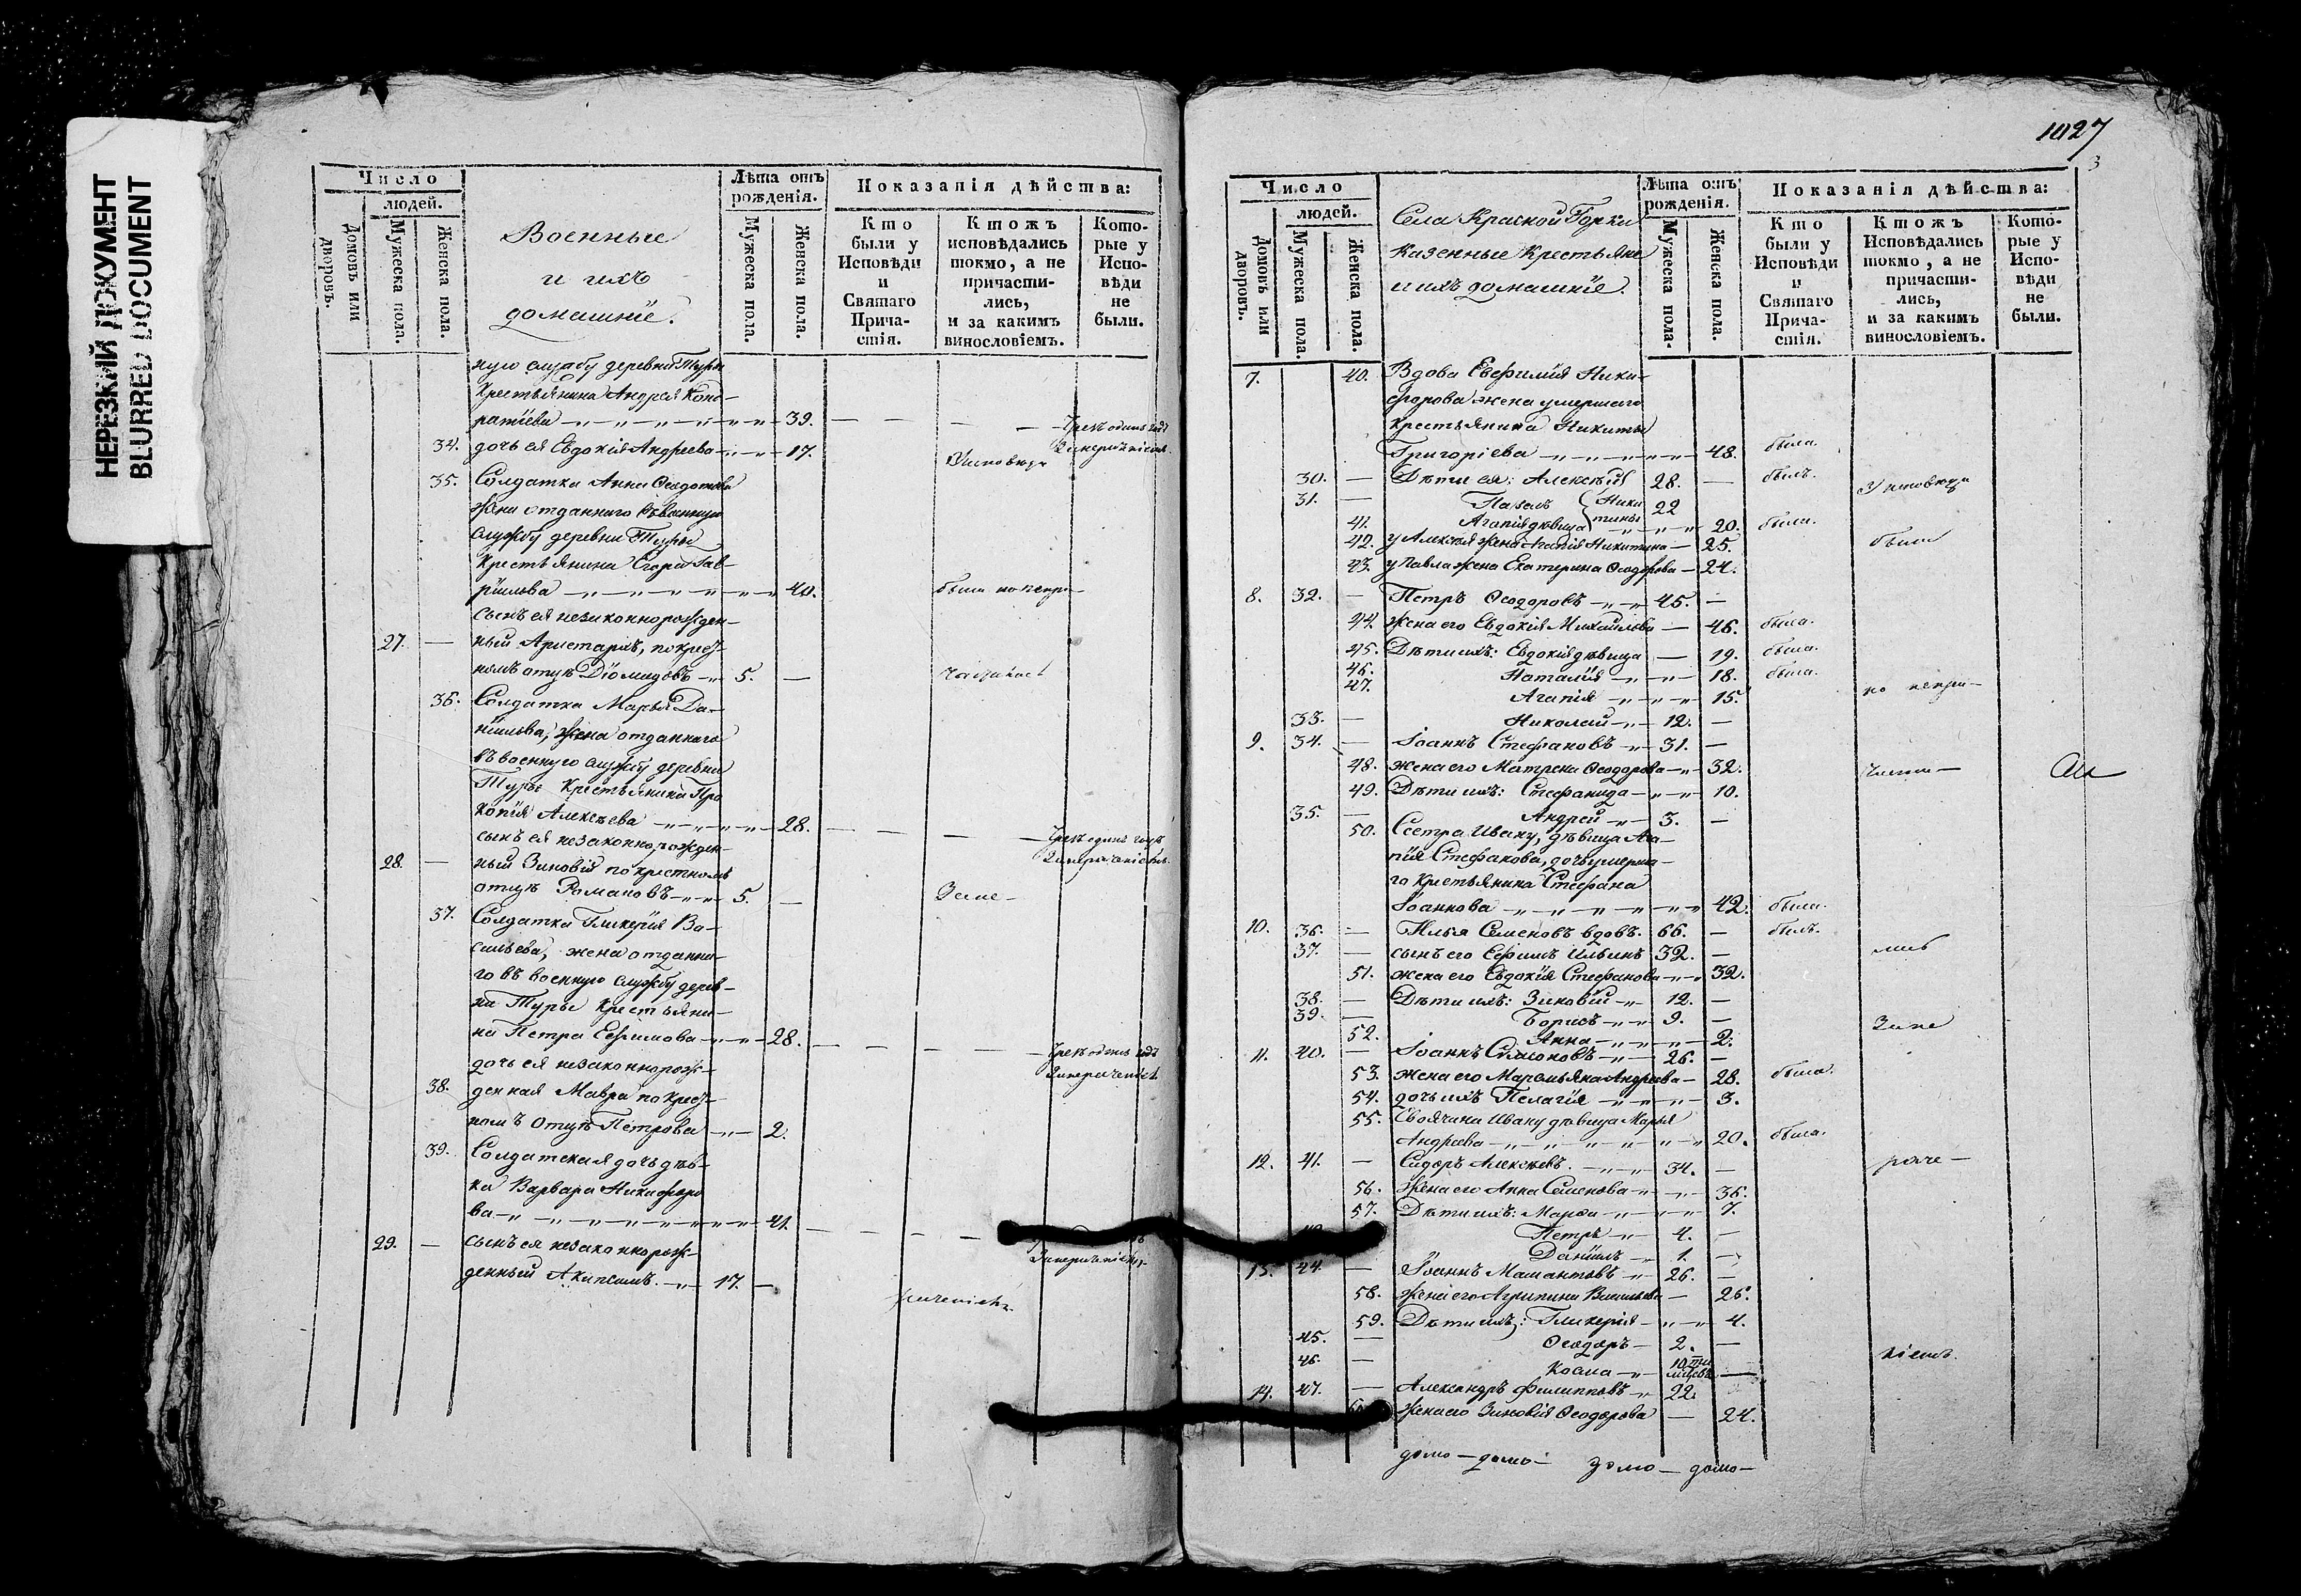 НЕРЕЗКИЙ ДОКУМЕНТ
BLURRED DOCUMENT
Число
людей.
Домовъ или дворовъ.
Мужеска пола.
Женска пола.
Военные
и ихъ
домашніе.
Лѣта отъ рожденія.
Мужеска пола.
Женска пола.
Показанія дѣйства:
Кто были у Исповѣди и Святаго Прича-стія.
Ктожъ исповѣдались токмо, а не причасти-лись, и за какимъ винословіемъ.
Кото-рые у Испо-вѣди не были.
ную службу деревни Туры
Крестьянина Андрея Конд-
ратіева 39.
34. дочь ея Евдокія Андреева 17.
35. Солдатка Анна Ѳеодотова
жена отданнаго въ военную
службу деревни Туры
Крестьянина Егора Гав-
рилова 40.
сынъ ея незаконнорожден-
27. — ный Аристархъ, по крест-
номъ отцѣ Діомидовъ 5. —
36. Солдатка Марья Да-
ніилова, жена отданнаго
въ военную службу деревни
Туры Крестьянина Про
копія Алексѣева 28.
сынъ ея незаконнорожден-
28. — ный Зиновій по крестномъ
отцѣ Романовъ 5. —
37. Солдатка Гликерія Ва-
сильева, жена отданна-
го въ военную службу дерев-
ни Туры Крестьяни-
на Петра Ефимова 28.
дочь ея незаконнорож-
38. денная Мавра по крест-
номъ отцѣ Петрова 2.
39. Солдатская дочь дѣв-
ка Варвара Никифоро
ва 41.
29. — сынъ ея незаконнорож-
денный Акиндинъ. 17. —
1027
3
Число
людей.
Домовъ или дворовъ.
Мужеска пола.
Женска пола.
Села Красной Горки
Казенные Крестьяне
и ихъ домашніе.
Лѣта отъ рожденія.
Мужеска пола.
Женска пола.
Показанія дѣйства:
Кто были у Исповѣди и Святаго Прича-стія.
Ктожъ Исповѣдались токмо, а не причасти-лись, и за какимъ винословіемъ.
Кото-рые у Испо-вѣди не были.
7. 40. Вдова Евфимія Ники-
форова жена умершаго
Крестьянина Никиты
Григоріева 48. была.
30. — Дѣти ея: Алексѣй 28. — былъ.
31. — Павелъ Ники 22
41. Агапія дѣвица тины 20. была.
42. у Алексѣя жена Агапія Никитина — 25. были
43. у Павла жена Екатерина Ѳеодорова — 24.
8. 32. — Петръ Ѳеодоровъ 45. —
44. жена его Евдокія Михайлова — 46. была.
45. Дѣти ихъ: Евдокія дѣвица — 19. была.
46. Наталія 18. была.
47. Агапія 15. но непри—
33. — Николай 12. —
9. 34. — Іоаннъ Стефановъ 31. —
48. жена его Матрена Ѳеодорова 32.
49. Дѣти ихъ: Стефанида 10.
35. — Андрей 3. —
50. Сестра Ивану, дѣвица Ага-
пія Стефанова, дочь умерша-
го Крестьянина Стефана
Іоаннова 42. была.
10. 36. — Илья Семеновъ вдовъ. 66. — былъ.
37. — сынъ его Ефимъ Ильинъ 32. —
51. жена его Евдокія Стефанова 32.
38. — Дѣти ихъ: Зиновій 12. —
39. — Борисъ 9. —
52. Анна 2.
11. 40. — Іоаннъ Симоновъ 26. —
53. жена его Маремьяна Андреева — 28. была.
54. дочь ихъ Пелагія 3.
55. Своячина Ивану дѣвица Марья
Андреева 20. была.
12. 41. — Сидоръ Алексѣевъ. 34. —
56. Жена его Анна Семенова 36.
57. Дѣти ихъ: Марѳа 7.
Петръ 4. —
Даніилъ 1. —
13. 44. — Іоаннъ Мамантовъ 26. —
58. Жена его Агрипина Васильева — 26.
59. Дѣти ихъ: Гликерія 4.
45. — Ѳеодоръ — 2. —
46. — Косма 10ти мѣсяц —
14. 47. — Александръ Филипповъ 22.
Жена его Зиновія Ѳеодорова — 24.